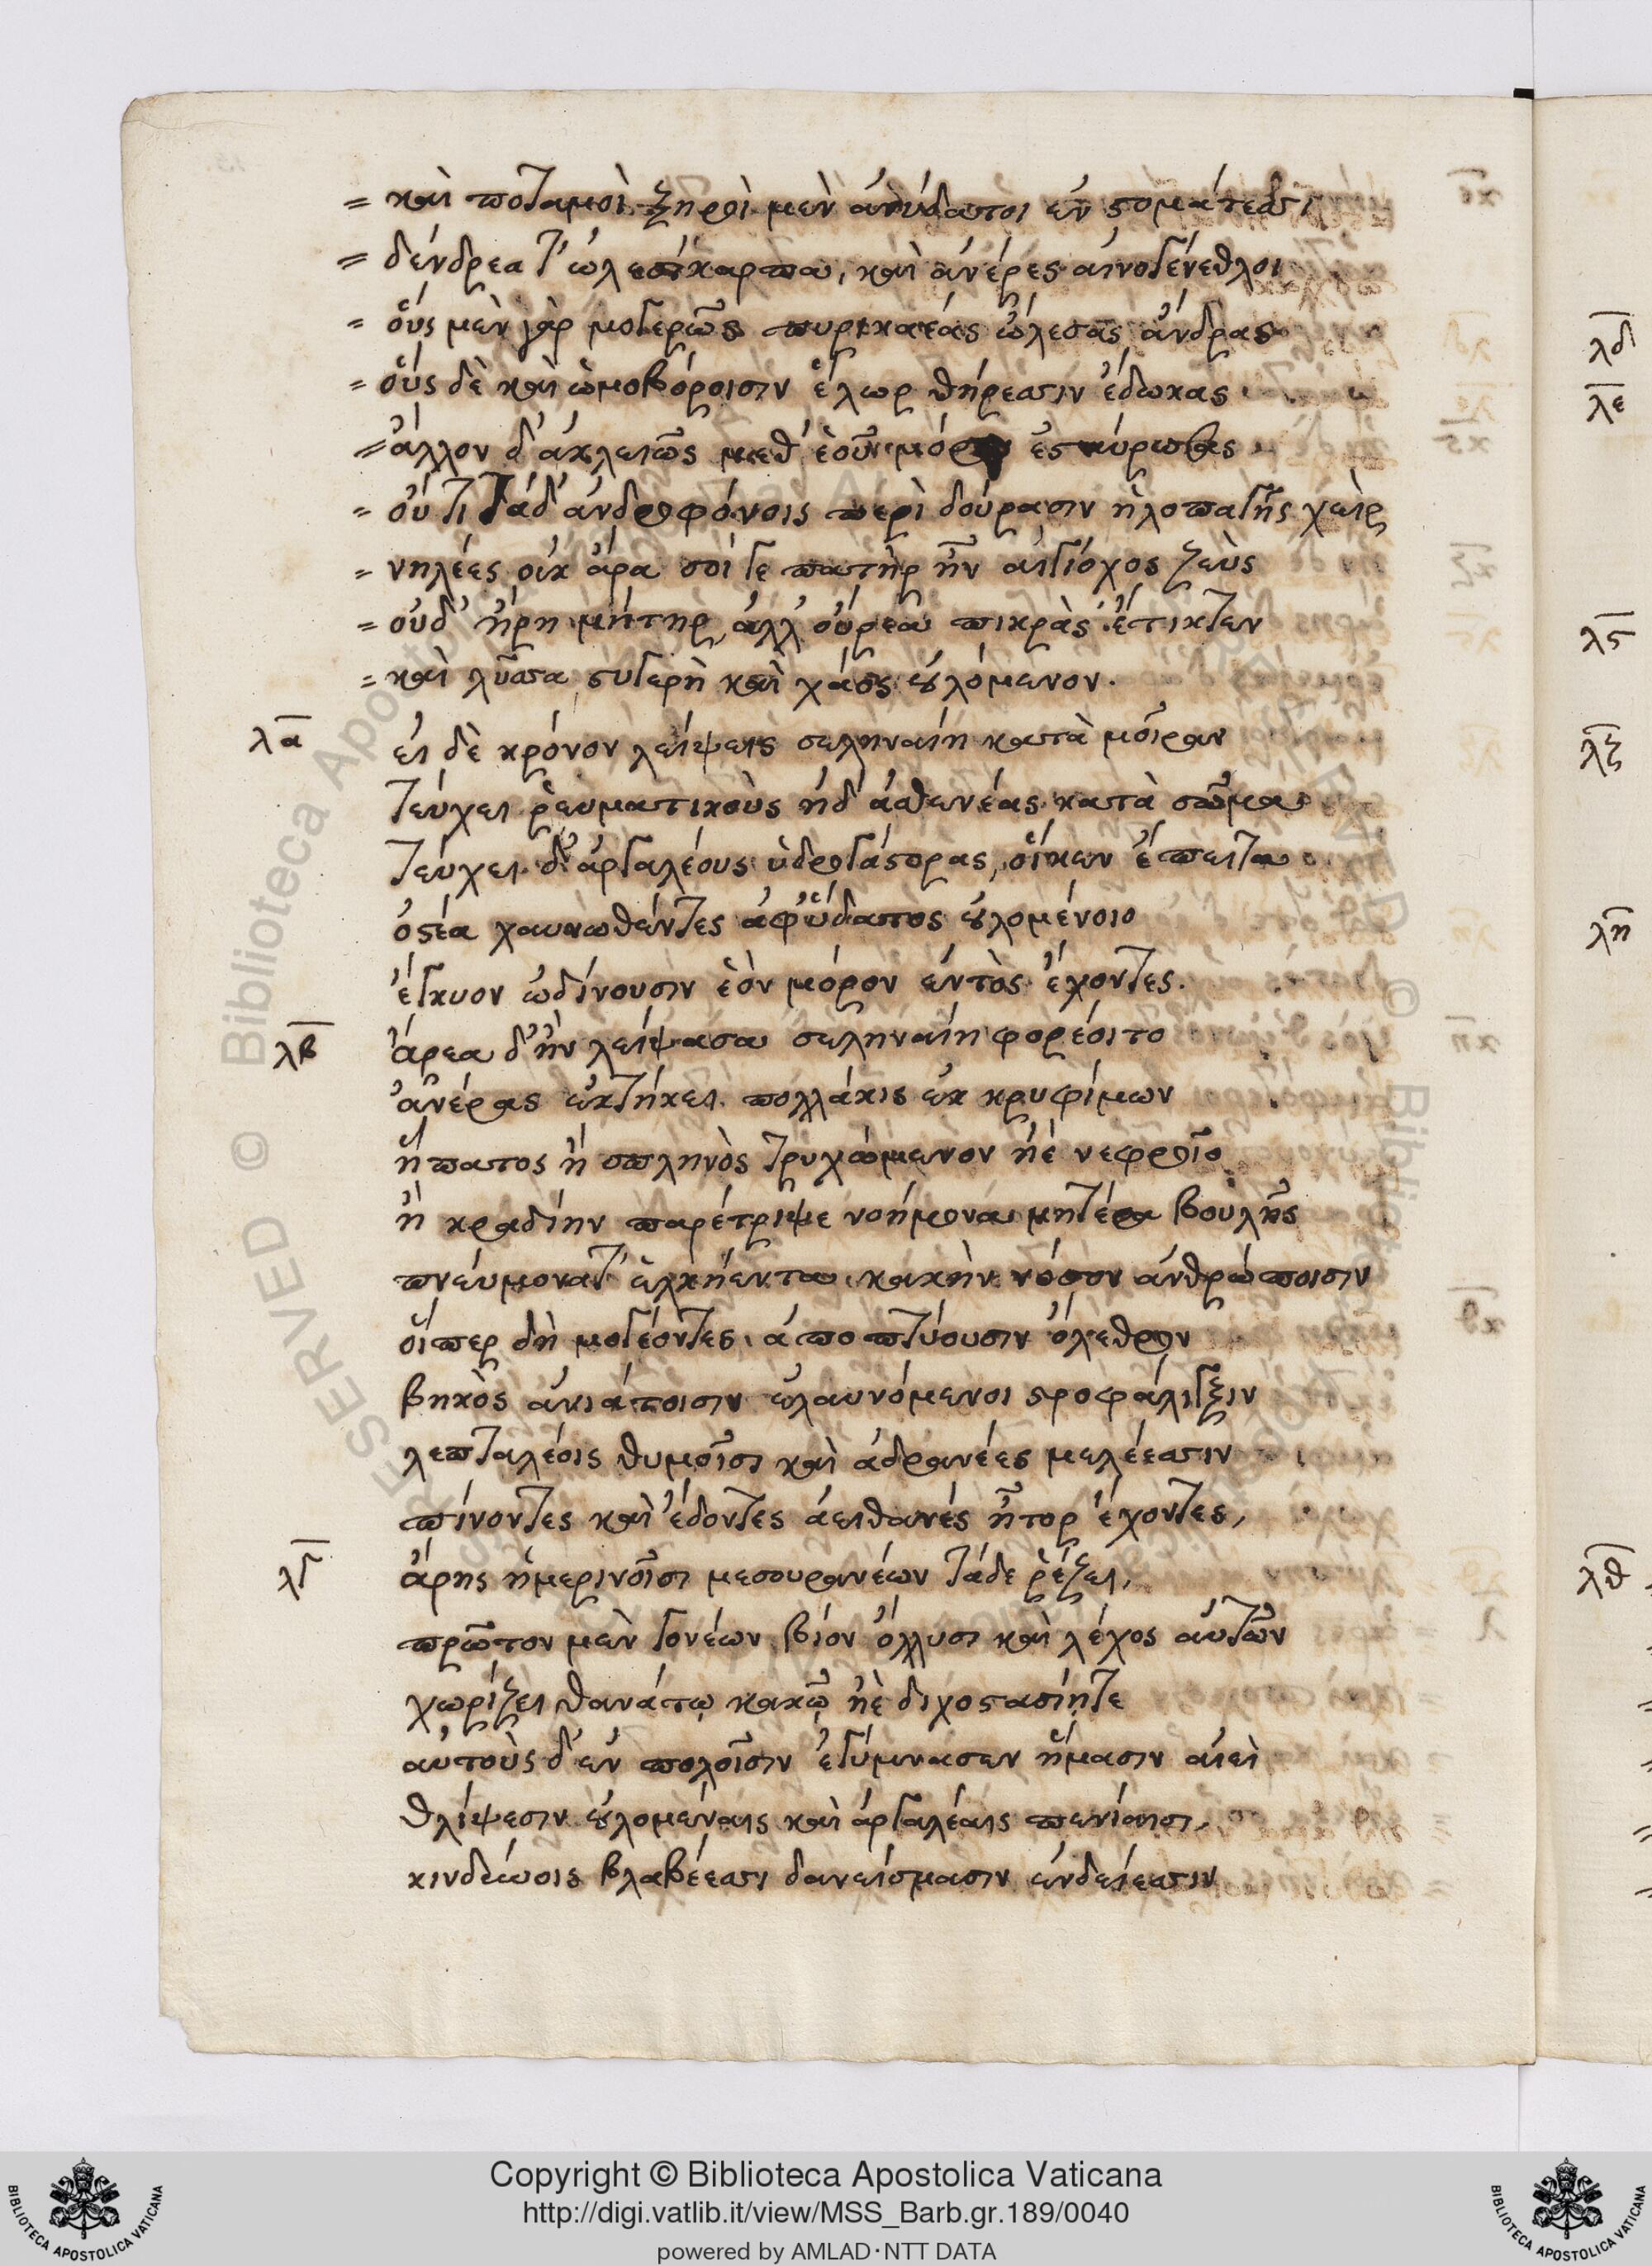 = καὶ ποταμοὶ ξηροὶ μὲν ἀνύδατοι ἐν στομάτεσσι
= δένδρεα τ' ὠλεσίκαρπα, καὶ ἀνέρες αἰνογένεθλοι
= οὓς μὲν γὰρ μογερῶς πυρικαέας ὤλεσας ἄνδρας
= οὓς δὲ καὶ ὠμοβόροισιν ἕλωρ θήρεσσιν ἔδωκας.
= ἄλλον δ' ἀκλειῶς μεθ' ἑοῦ μόρου ἐσταύρωσας
= οὔ τι τάδ' ἀνδροφόνοις περὶ δούρασιν ἡλοπαγὴς χεὶρ
= νηλέες οὐκ ἄρα σοί γε πατὴρ ἦν αἰγίοχος ζεὺς
= οὐδ' ἥρη μήτηρ, ἀλλ' οὔρεα πικρὰς ἔτικτεν
= καὶ λύσσα στυγερὴ καὶ χάος οὐλόμενον.
λα εἰ δὲ κρόνον λείψεις σεληναίη κατὰ μοῖραν
τεύχει ῥευματικοὺς ἠδ' ἀσθενέας κατὰ σῶμα
τεύχει δ' ἀργαλέους ὑδρογάστορας, οἵ κεν ἔπειτα
ὀστέα χαυνωθέντες ἀφ' ὕδατος οὐλομένοιο
ἔγκυον ὠδίνουσιν ἑὸν μόρον ἐντὸς ἔχοντες.
λβ ἄρεα δ' ἢν λείψασα σεληναίη φορέοιτο
ἀνέρας ἐκτήκει πολλάκις ἐκ κρυφίμων
ἥπατος ἢ σπληνὸς τρυχώμενον ἠὲ νεφροῖο
ἢ κραδίην παρέτριψε νοήμονα μητέρα βουλῆς
πνεύμονα τ' ἑλκήεντα κακὴν νόσον ἀνθρώποισιν
οἵπερ δὴ μογέοντες ἀποπτύουσιν ὄλεθρον
βηκὸς ἀνιάτοισιν ἐλαυνόμενοι στροφάλιγξιν
λεπταλέοις θυμοῖσι καὶ ἀδρανέες μελέεσσιν
πίνοντες καὶ ἔδοντες ἀειθανὲς ἦτορ ἔχοντες,
λγ ἄρης ἡμερινοῖσι μεσουρανέων τάδε ῥέζει,
πρῶτον μὲν γονέων βίον ὄλλυσι καὶ λέχος αὐτῶν
χωρίζει θανάτῳ κακῷ ἠὲ διχοστασίῃ τε
αὐτοὺς δ' ἐν πολοῖσιν ἐγύμνασεν ἤμασιν αἰεὶ
θλίψεσιν οὐλομέναις καὶ ἀργαλέαις πενίαισι,
κινδύνοις βλαβέεσσι δανείσμασιν ἐνδείεσσιν
λδ
λε
λς
λζ
λη
λθ
Copyright © Biblioteca Apostolica Vaticana
http://digi.vatlib.it/view/MSS_Barb.gr.189/0040
powered by AMLAD·NTT DATA
BIBLIOTECA APOSTOLICA VATICANA
BIBLIOTECA APOSTOLICA VATICANA